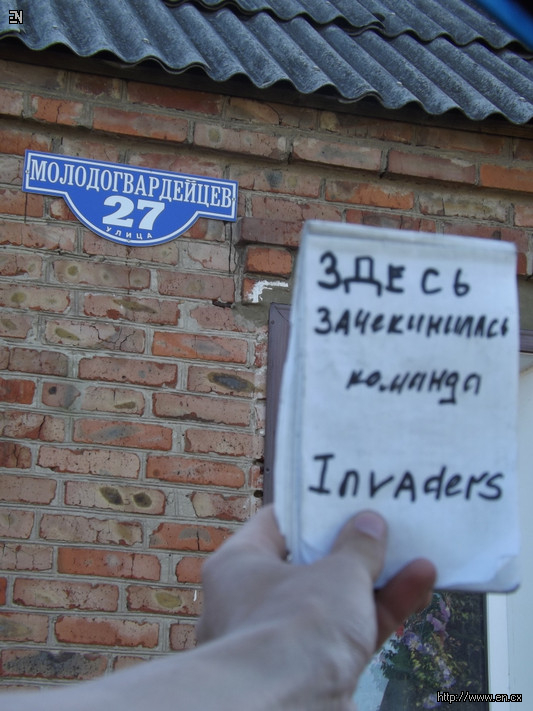 EN
МОЛОДОГВАРДЕЙЦЕВ
27
УЛИЦА
ЗДЕСЬ
ЗАЧЕКИНИЛАСЬ
команда
Invaders
http://www.en.cx